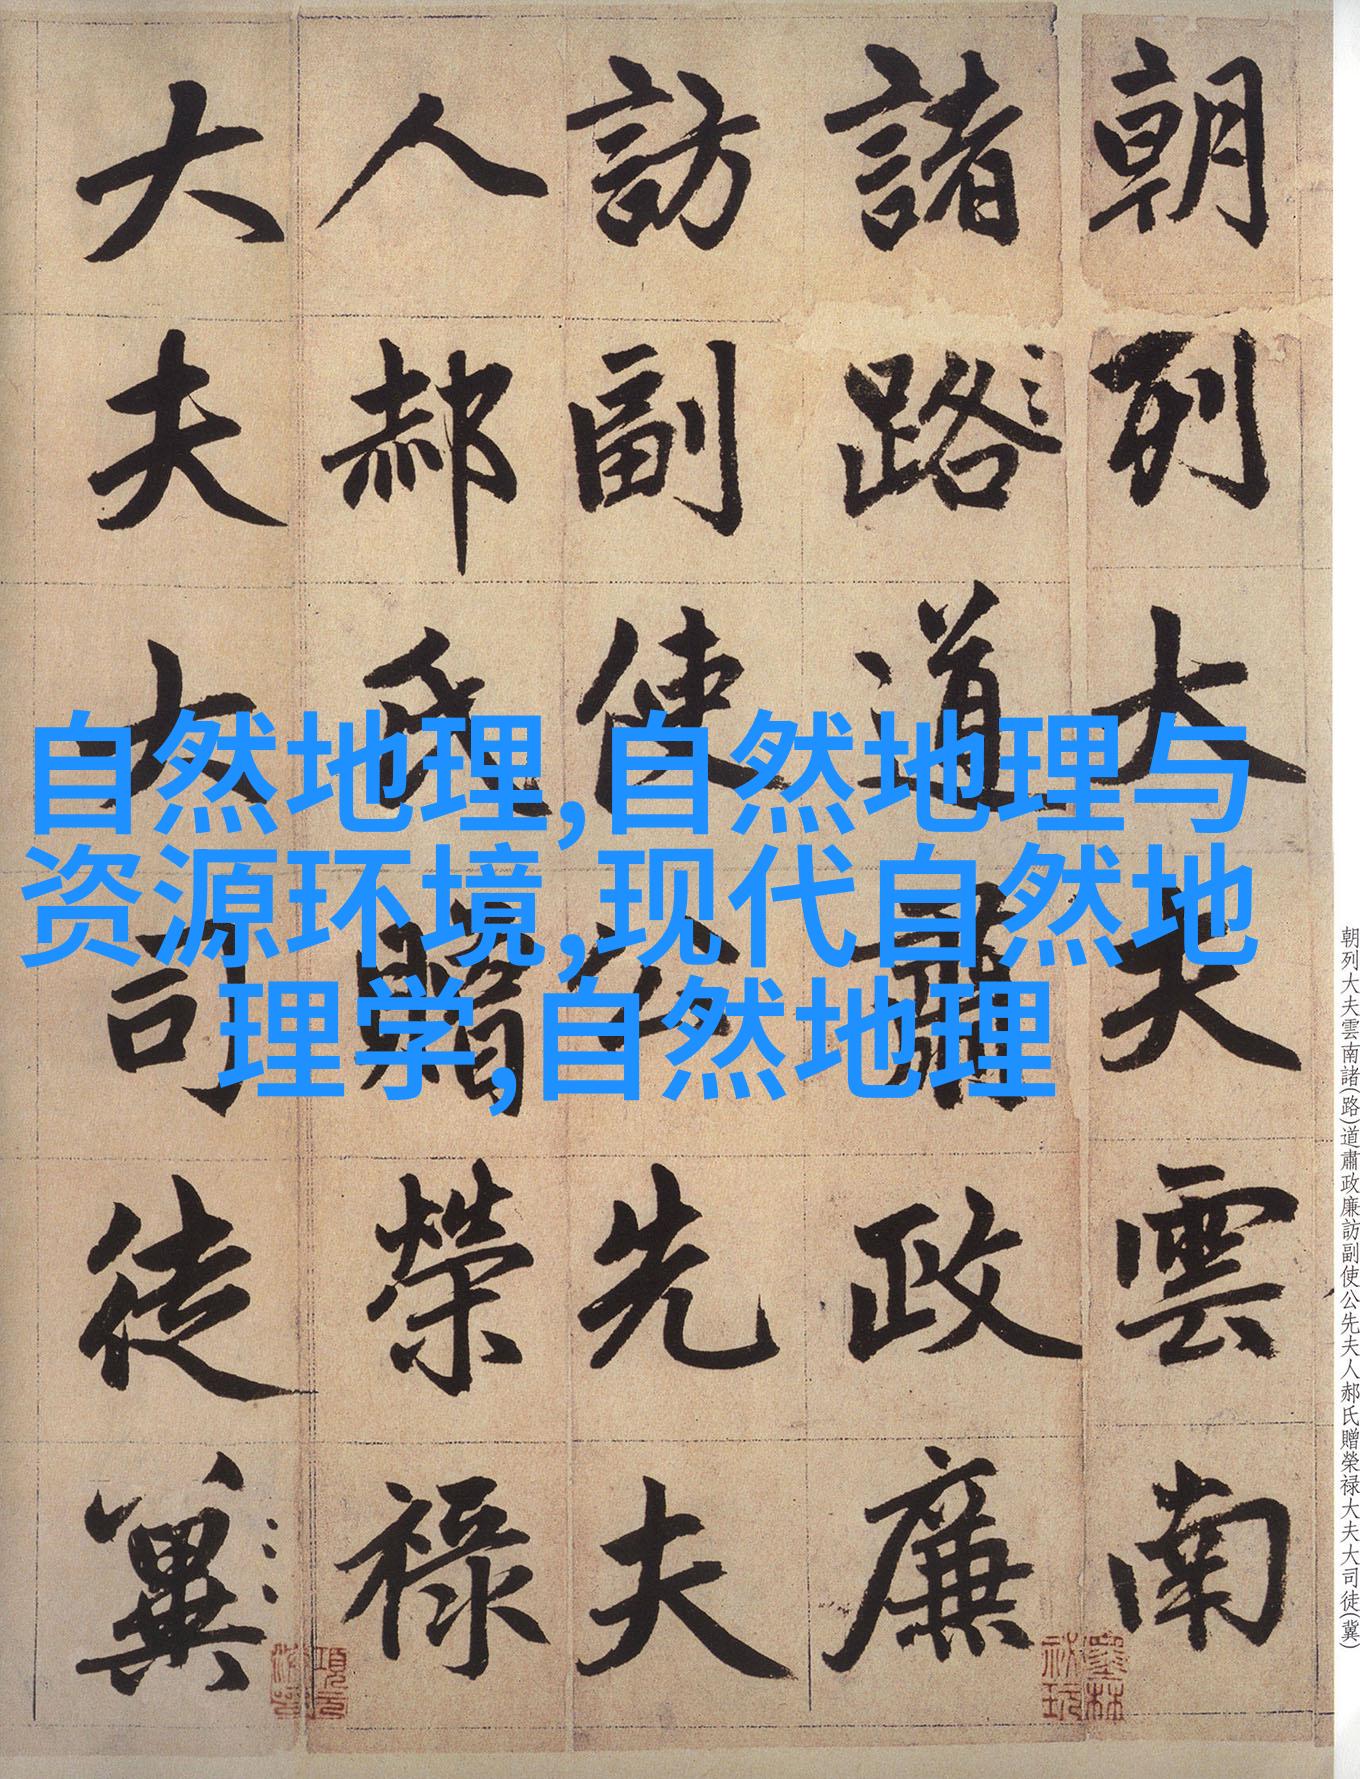 朝列大夫雲南
諸路道肅政廉
訪副使公先夫
人郝氏贈榮禄
大夫大司徒冀
自然地理,自然地理与
资源环境,现代自然地
理学,自然地理
朝列大夫雲南諸(路)道肅政廉訪副使公先夫人郝氏贈榮禄大夫大司徒(冀)
墨林祕玩
項元汴印